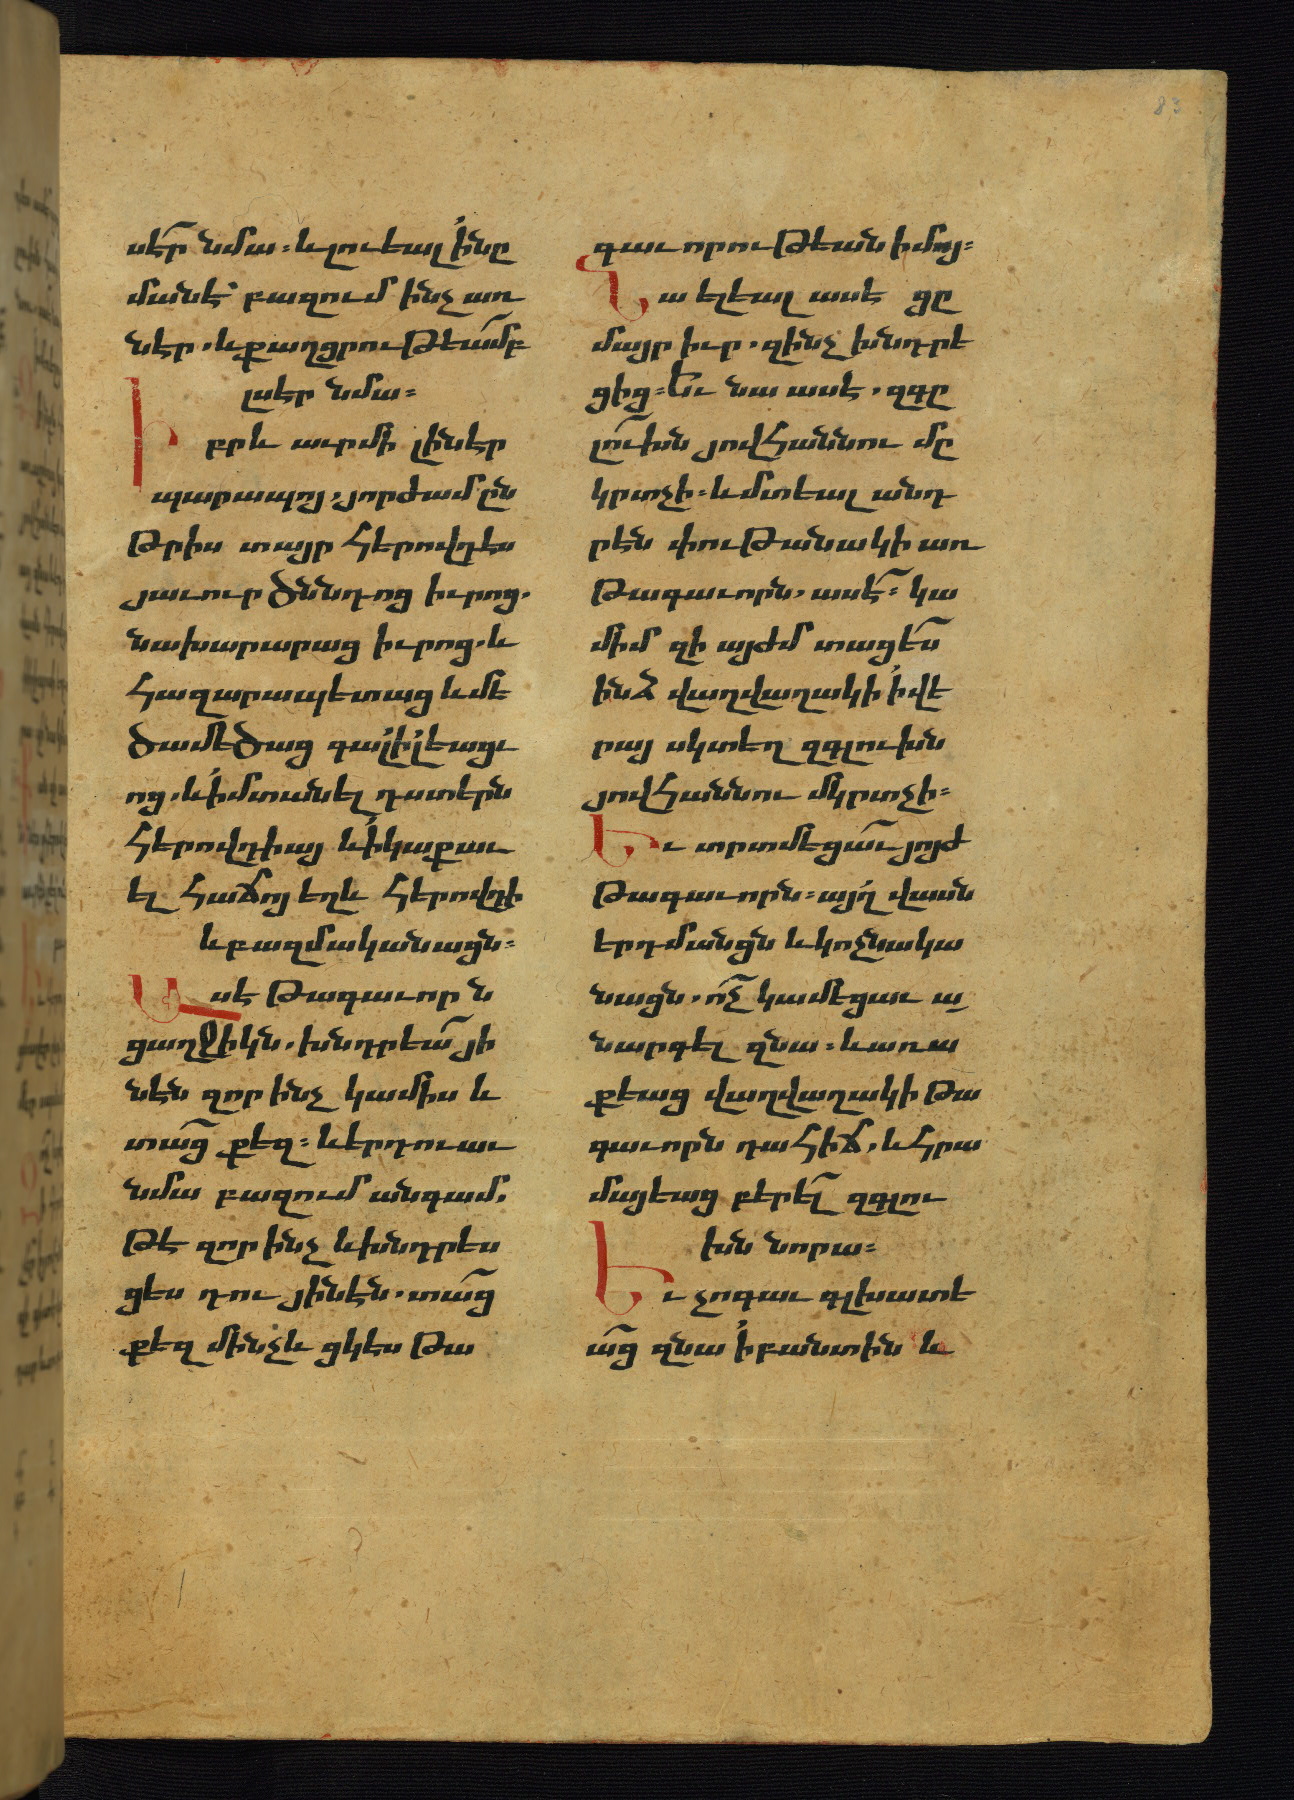 83
սէ՜ր նմա։ և լուեալ ի՛նը
մանէ՝ բազում ինչ առ
նէր, և քաղցրութե՜ամբ
լսէր նմա։
Իբրև աւր մի լինէր
պարապոյ, յորժամ ըն
թրիս տայր հերովդէս
յաւուր ծննդոց իւրոց,
նախարարաց իւրոց, և
հազարապետաց և մե
ծամեծաց գալիլեացւ
ոց, և ի՛մտանել դստերն
հերովդիայ և ի՛կաքաւ
ել հաճոյ եղև հերովդի
և բազմականացն։
Ասէ թագաւորն
ցաղջիկն, խնդրեա՜ յի
նէն զոր ինչ կամիս և
տա՜ց քեզ։ և երդուաւ
նմա բազում անգամ,
թէ զոր ինչ և խնդրես
ցես դու յինէն, տա՜ց
քեզ մինչև ցկէս թա
գաւորութեան իմոյ։
Նա ելեալ ասէ ցը
մայր իւր, զինչ խնդրե
ցից։ Եւ նա ասէ, զգը
լո՜ւխն յովհաննու մը
կրտչի։ և մտեալ անդ
րէն փութանակի առ
թագաւորն, ասէ՜։ կա
միմ զի այժմ տացե՜ս
ինձ վաղվաղակի ի՛վե
րայ սկտեղ զգլուխն
յովհաննու մկրտչի։
Եւ տրտմեցա՜ւ յոյժ
թագաւորն։ այղ վասն
երդմանցն և կոչնակա
նացն, ո՜չ կամեցաւ ա
նարգել զնա։ և առա
քեաց վաղվաղակի թա
գաւորն դահիճ, և հրա
մայեաց բերե՜լ զգլու
խն նորա։
Եւ չոգաւ գլխատե
ա՜ց զնա ի՛բանտին և